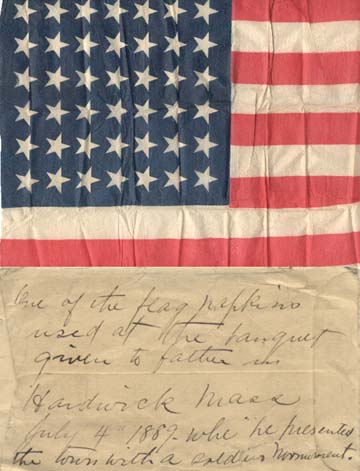 One of the flag napkins
used at the banquet
given to father in
Hardwick Mass
July 4th 1889- when he presented
the town with a soldiers monument.